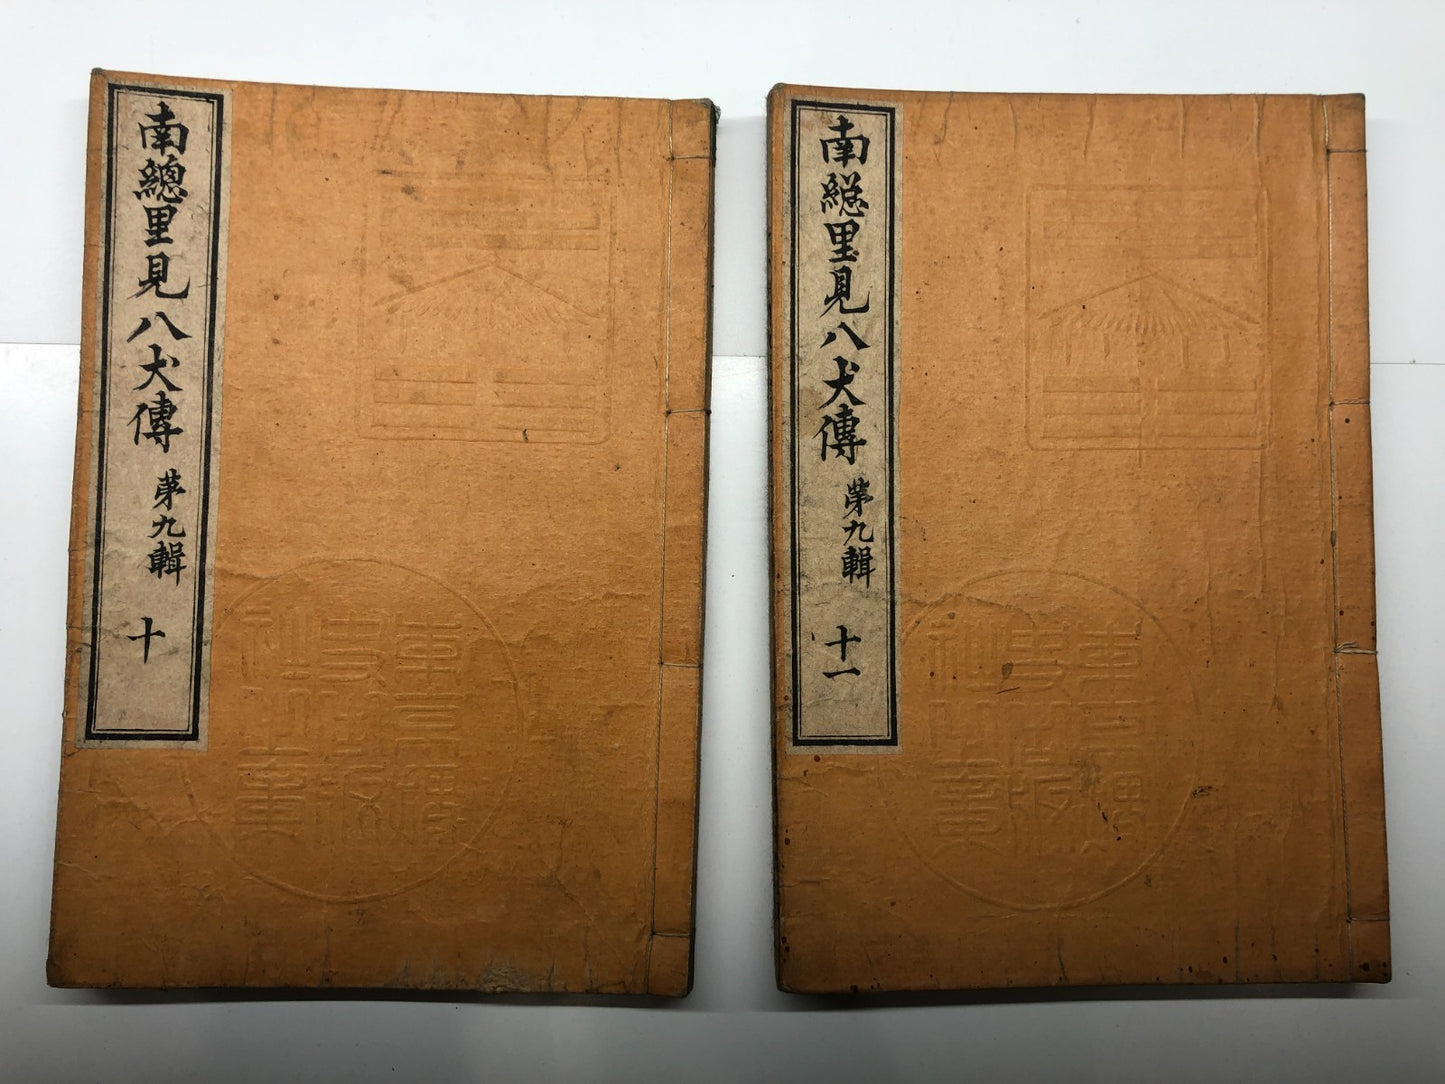 南總里見八犬傳 第九輯 十
南総里見八犬傳 第九輯 十一